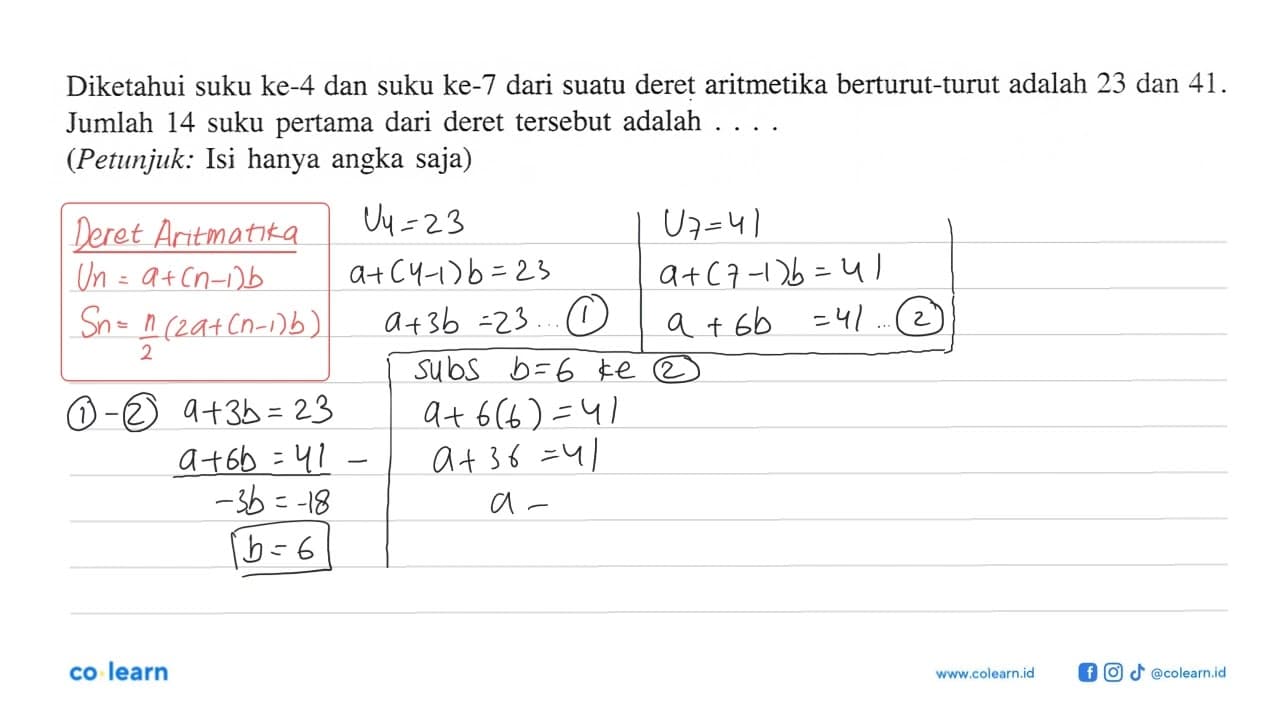 Diketahui suku ke-4 dan suku ke-7 dari suatu deret aritmetika berturut-turut adalah 23 dan 41.
Jumlah 14 suku pertama dari deret tersebut adalah . . . .
(Petunjuk: Isi hanya angka saja)
Deret Aritmatika
Un = a+(n-1)b
Sn = n/2 (2a+(n-1)b)
U4 = 23
a+(4-1)b = 23
a+3b = 23 ... ①
U7 = 41
a+(7-1)b = 41
a + 6b = 41 ... ②
① - ② a+3b = 23
a+6b = 41 -
-3b = -18
b = 6
subs b=6 ke ②
a+ 6(6) = 41
a+ 36 = 41
a -
co learn
www.colearn.id
@colearn.id